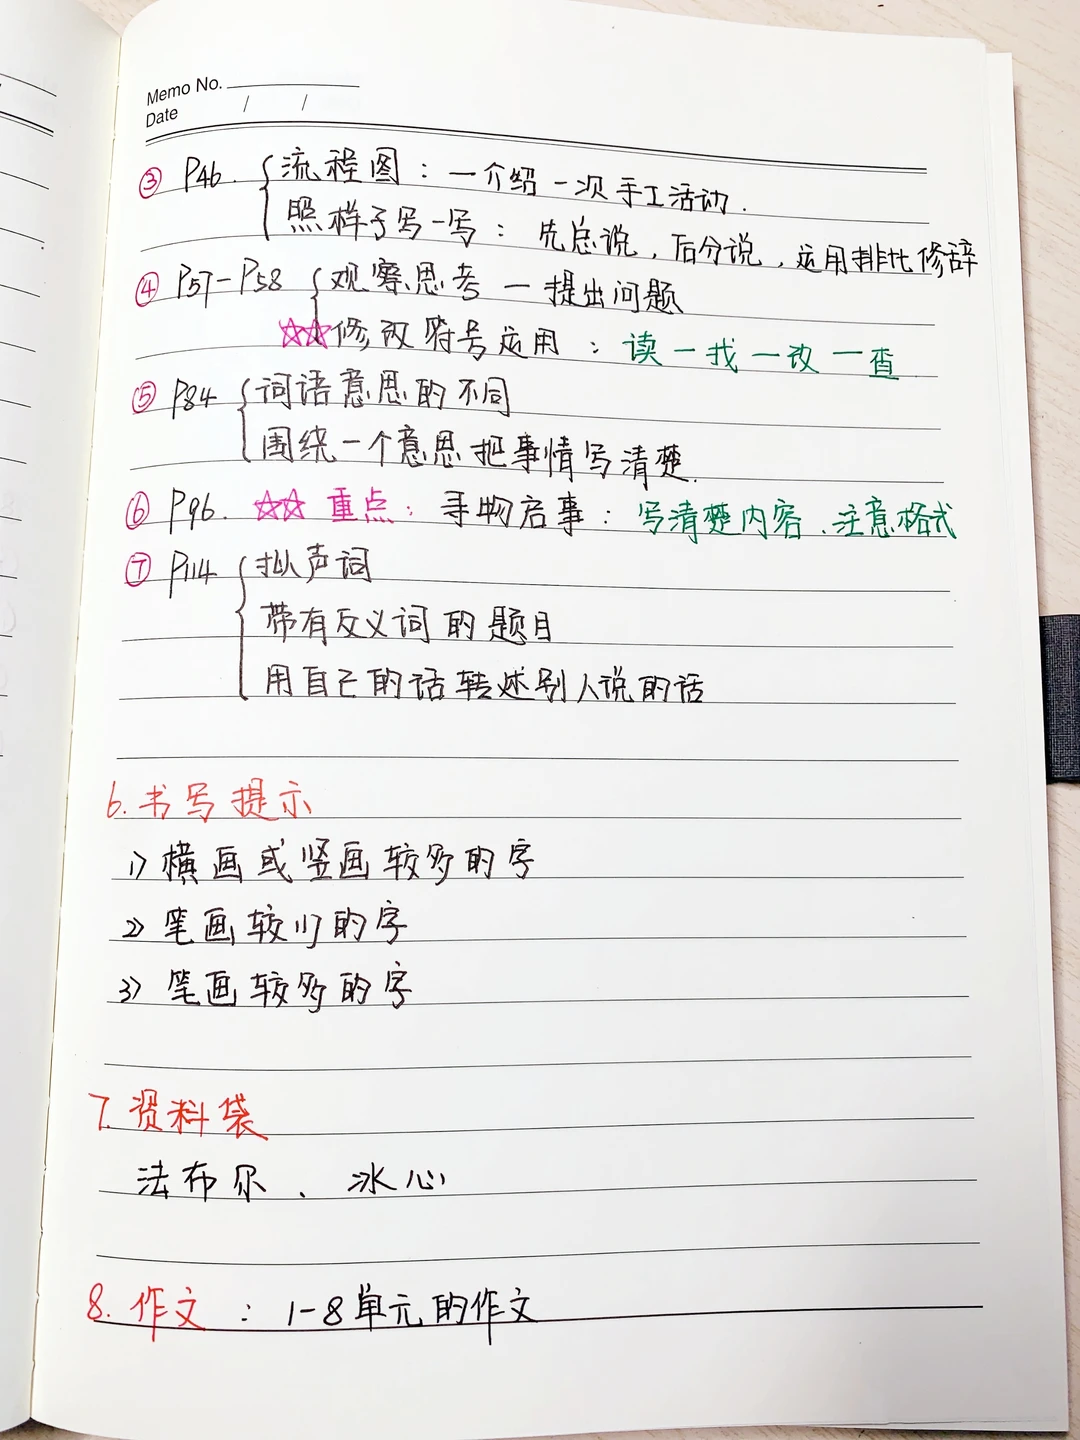 Memo No.
Date / /
③ P46. 流程图：一介绍一次手工活动.
照样子写一写：先总说，后分说，运用排比修辞
④ P57-P58 观察思考 — 提出问题
☆☆修改符号运用：读一找一改一查
⑤ P84 词语意思的不同
围绕一个意思把事情写清楚.
⑥ P96. ☆☆ 重点：寻物启事：写清楚内容、注意格式
⑦ P114 拟声词
带有反义词的题目
用自己的话转述别人说的话
6.书写提示
1) 横画或竖画较多的字
2) 笔画较少的字
3) 笔画较多的字
7.资料袋
法布尔、冰心
8.作文：1-8单元的作文